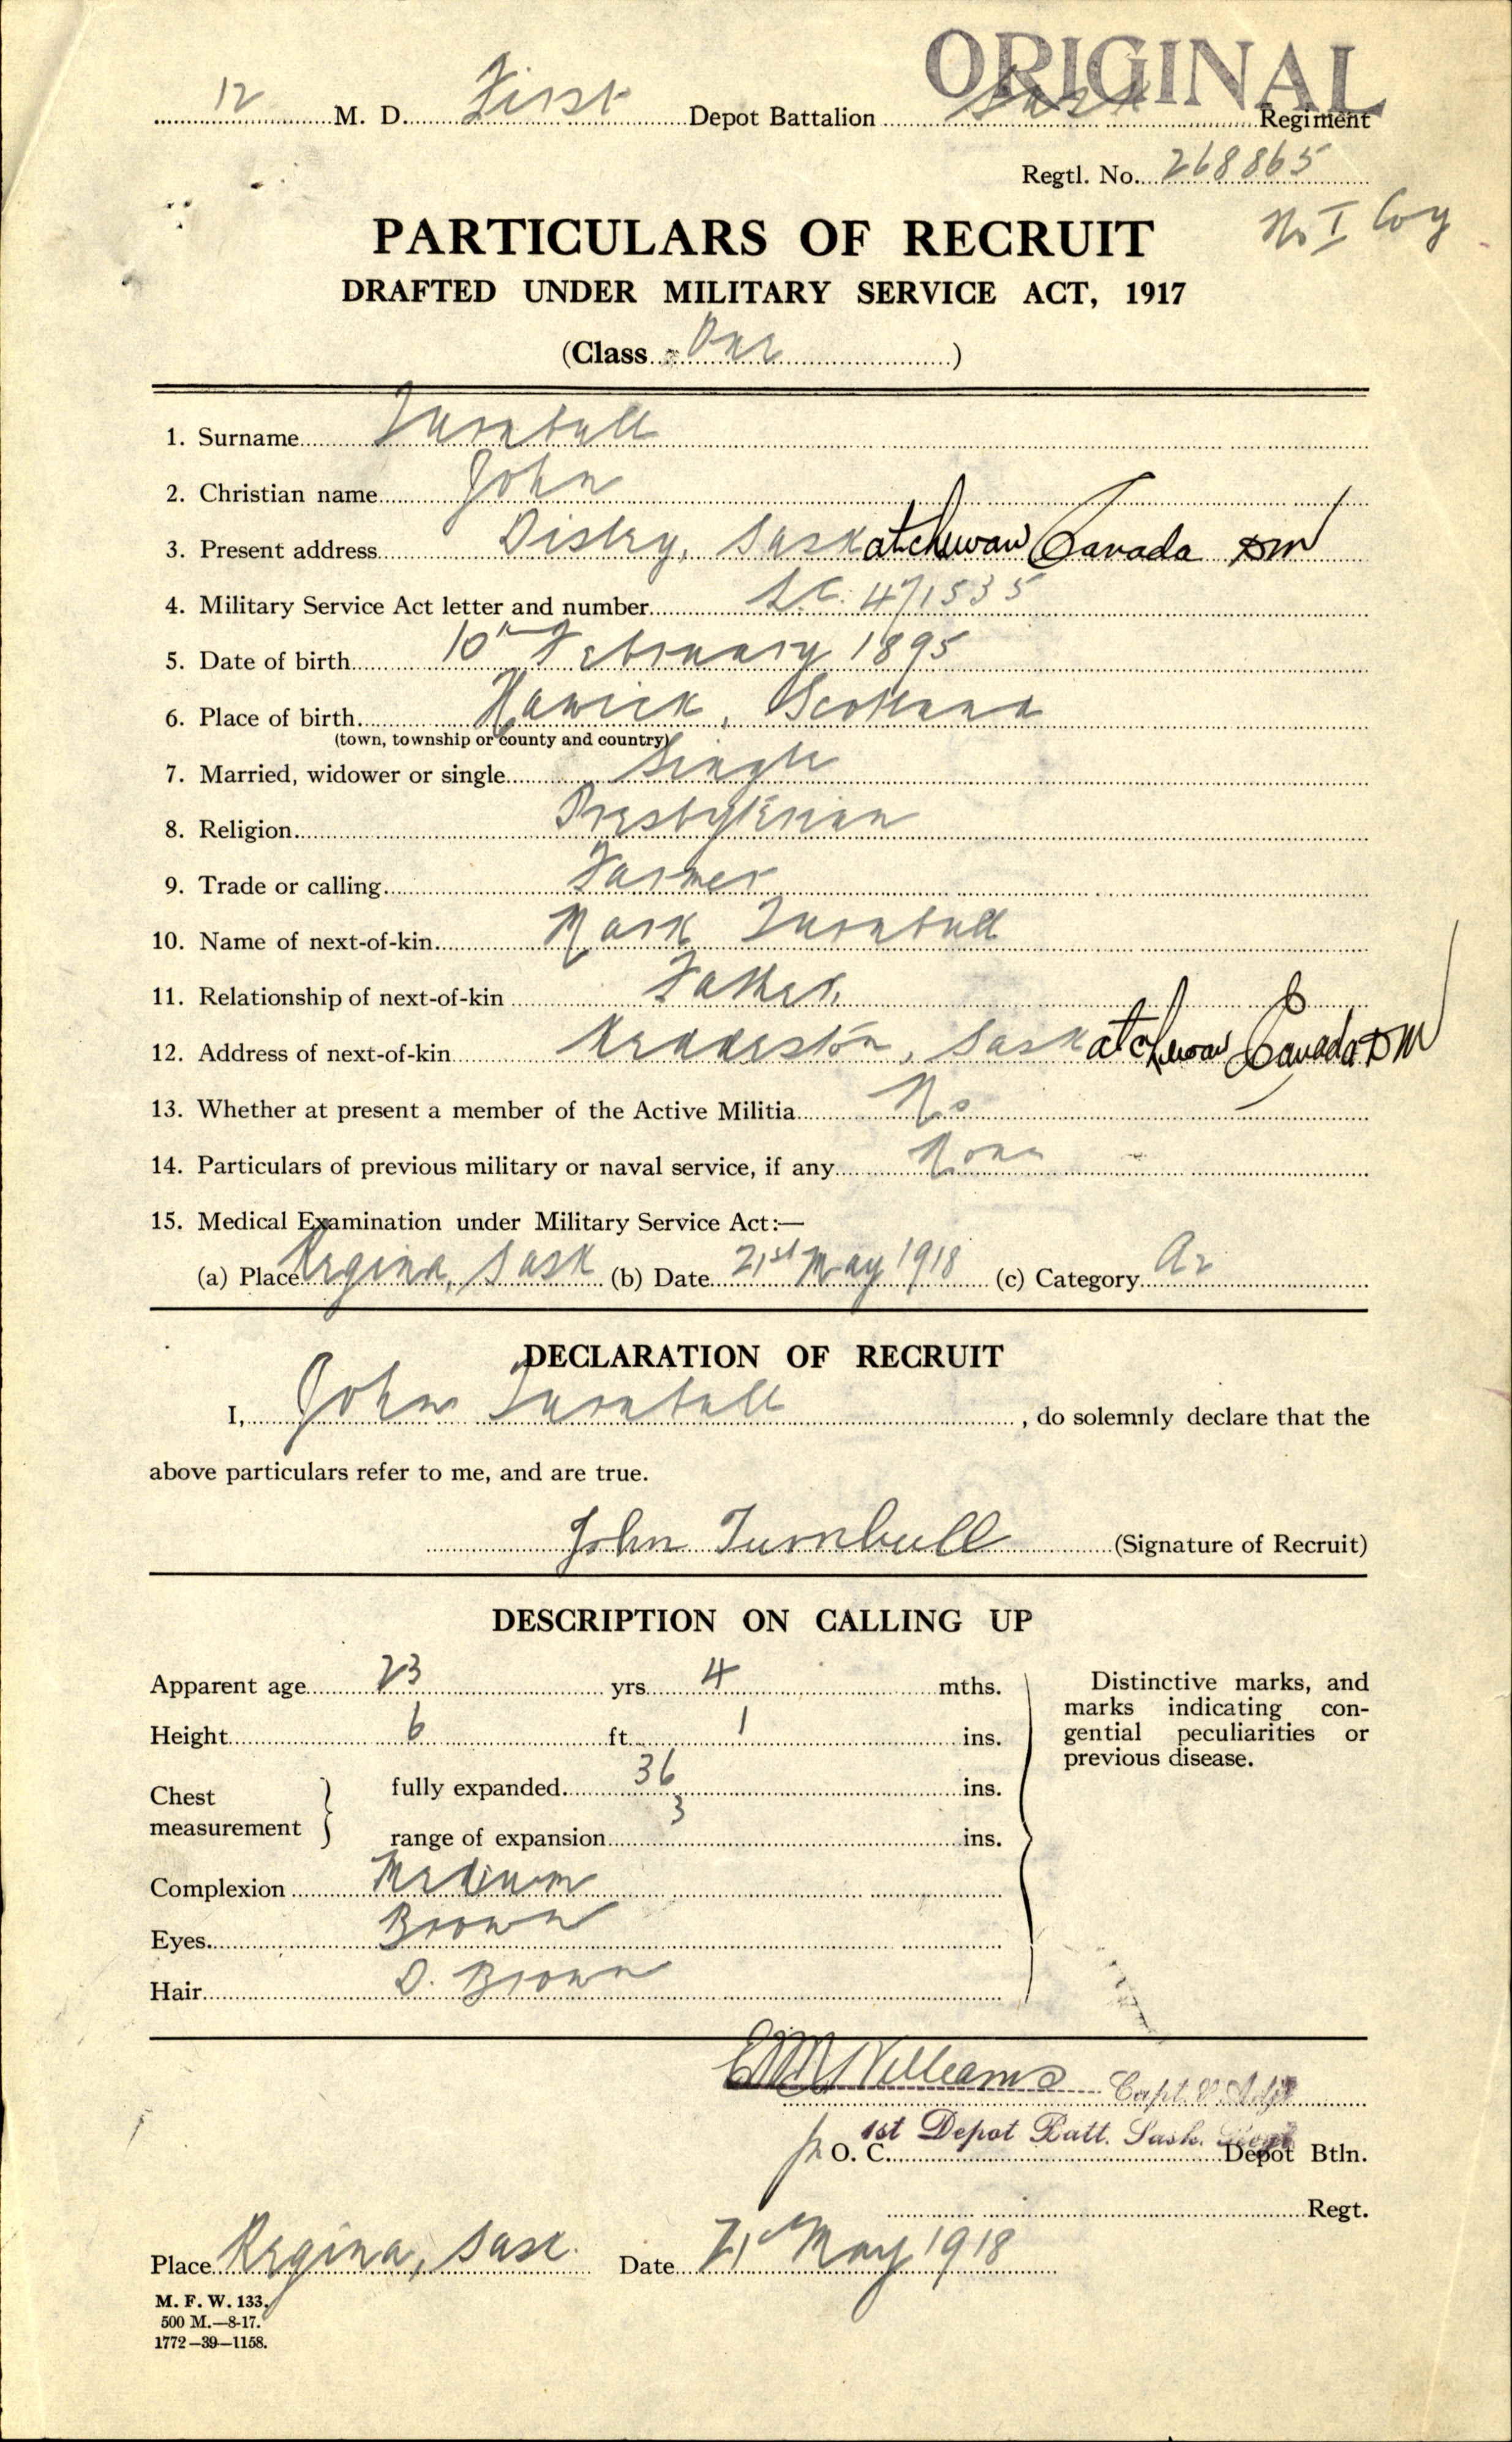 ORIGINAL
12 M. D. First Depot Battalion Sask Regiment
Regtl. No. 268865
No I Coy
PARTICULARS OF RECRUIT
DRAFTED UNDER MILITARY SERVICE ACT, 1917
(Class One)
1. Surname Turnbull
2. Christian name John
3. Present address Disley, Saskatchewan Canada DM
4. Military Service Act letter and number LC. 471535
5. Date of birth 10th February 1895
6. Place of birth Hawick, Scotland
(town, township or county and country)
7. Married, widower or single Single
8. Religion Presbyterian
9. Trade or calling Farmer
10. Name of next-of-kin Mark Turnbull
11. Relationship of next-of-kin Father
12. Address of next-of-kin Keddleston, Saskatchewan Canada DM
13. Whether at present a member of the Active Militia No
14. Particulars of previous military or naval service, if any None
15. Medical Examination under Military Service Act:—
(a) Place Regina, Sask (b) Date 21st May 1918 (c) Category A2
DECLARATION OF RECRUIT
I, John Turnbull, do solemnly declare that the
above particulars refer to me, and are true.
John Turnbull (Signature of Recruit)
DESCRIPTION ON CALLING UP
Apparent age 23 yrs. 4 mths.
Height 6 ft. 1 ins.
Chest measurement fully expanded 36 ins.
range of expansion 3 ins.
Complexion Medium
Eyes Brown
Hair D. Brown
Distinctive marks, and
marks indicating con-
gential peculiarities or
previous disease.
Williams Capt. & Adjt
1st Depot Batt. Sask. Regt
O. C. Depot Btln.
Regt.
Place Regina, Sask. Date 21st May 1918
M. F. W. 133.
500 M.—8-17.
1772—39—1158.